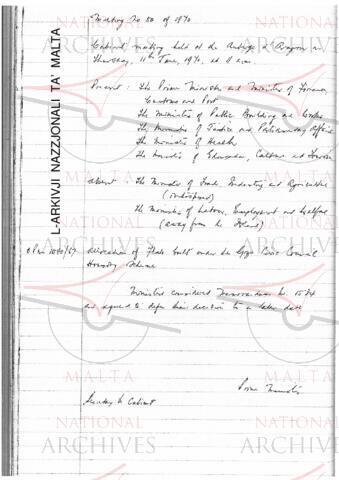 Meeting No 50 of 1970
Cabinet meeting held at the Auberge d'Aragon on
Thursday, 11th June, 1970, at 9 a.m.
Present: The Prime Minister and Minister of Finance,
Customs and Port
The Minister of Public Building and Works
The Minister of Justice and Parliamentary Affairs
The Minister of Health
The Minister of Education, Culture and Tourism
Absent The Minister of Trade, Industry and Agriculture
(indisposed)
The Minister of Labour, Employment and Welfare
(away from the Island)
Allocation of Flats built under the Gozo Civic Council
Housing Scheme
Ministers considered Memorandum No 1534
and agreed to defer their decision to a later date
Prime Minister
Secretary to Cabinet
L-ARKIVJI NAZZJONALI TA' MALTA
NATIONAL
ARCHIVES
MALTA
NATIONAL
ARCHIVES
MALTA
NATIONAL
ARCHIVES